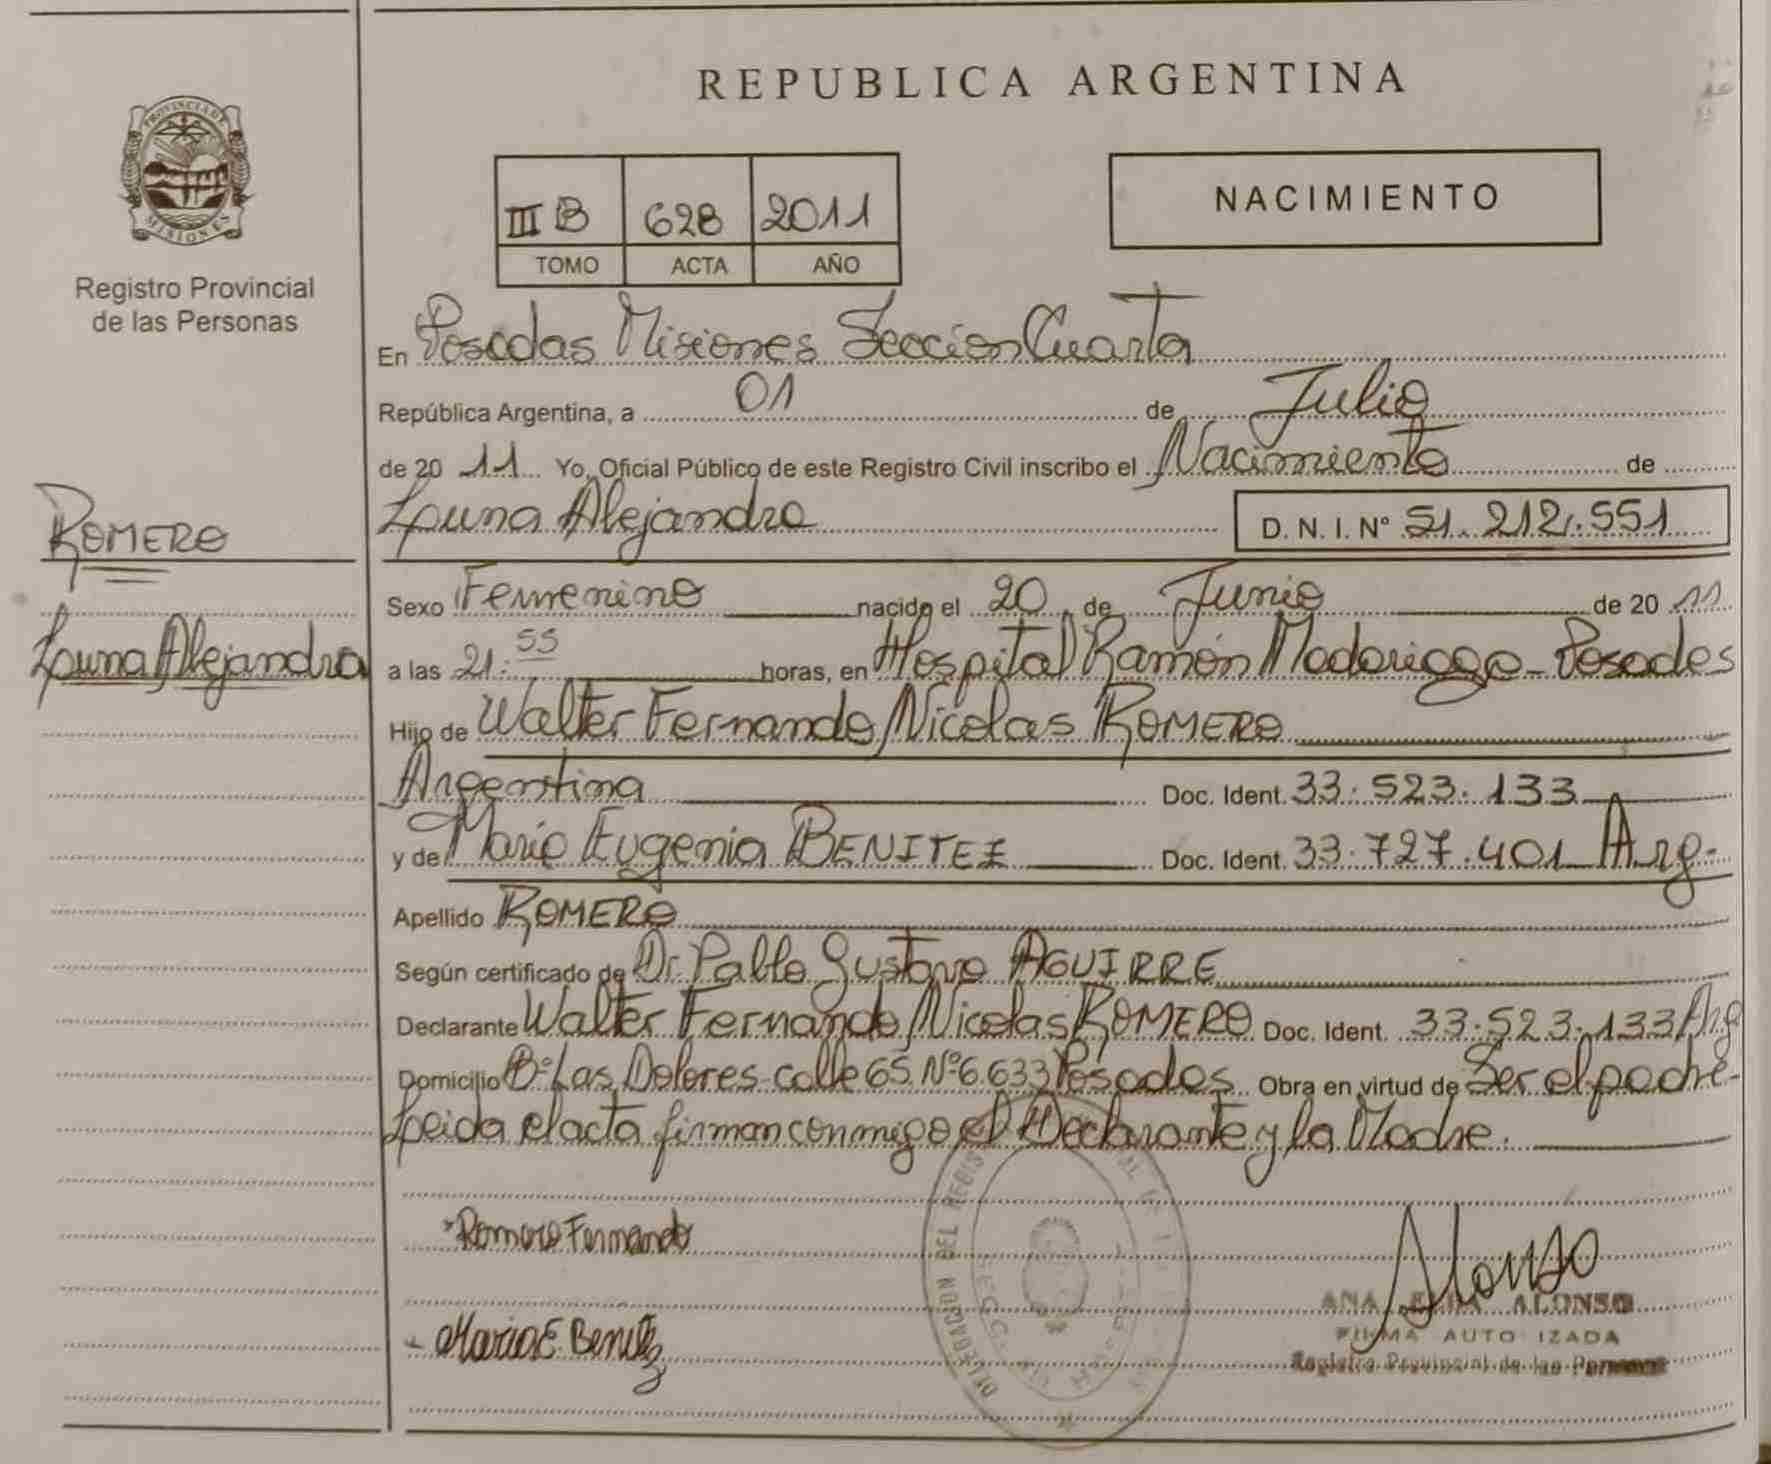 REPUBLICA ARGENTINA
PROVINCIA DE
MISIONES
Registro Provincial
de las Personas
III B 628 2011
TOMO ACTA AÑO
NACIMIENTO
En Posadas Misiones Sección Cuarta
República Argentina, a 01 de Julio
de 20 11 Yo, Oficial Público de este Registro Civil inscribo el Nacimiento de
Luna Alejandra D. N. I. N° 51.212.551
ROMERO
Luna Alejandra
Sexo Femenino nacido el 20 de Junio de 20 11
a las 21:55 horas, en Hospital Ramón Madariaga - Posadas
Hijo de Walter Fernando Nicolas ROMERO
Argentina Doc. Ident. 33.523.133
y de Maria Eugenia BENITEZ Doc. Ident. 33.727.401 Arg.
Apellido ROMERO
Según certificado de Dr. Pablo Gustavo AGUIRRE
Declarante Walter Fernando Nicolas ROMERO Doc. Ident. 33.523.133 Arg
Domicilio B° Las Dolores calle 65 N° 6.633 Posadas Obra en virtud de Ser el padre-
Leida el acta firman conmigo el Declarante y la Madre.
Romero Fernando
Maria E. Benitez
Alonso
ANA ALONSO
FIRMA AUTO IZADA
Registro Provincial de las Personas
DELEGACION DEL REGIS